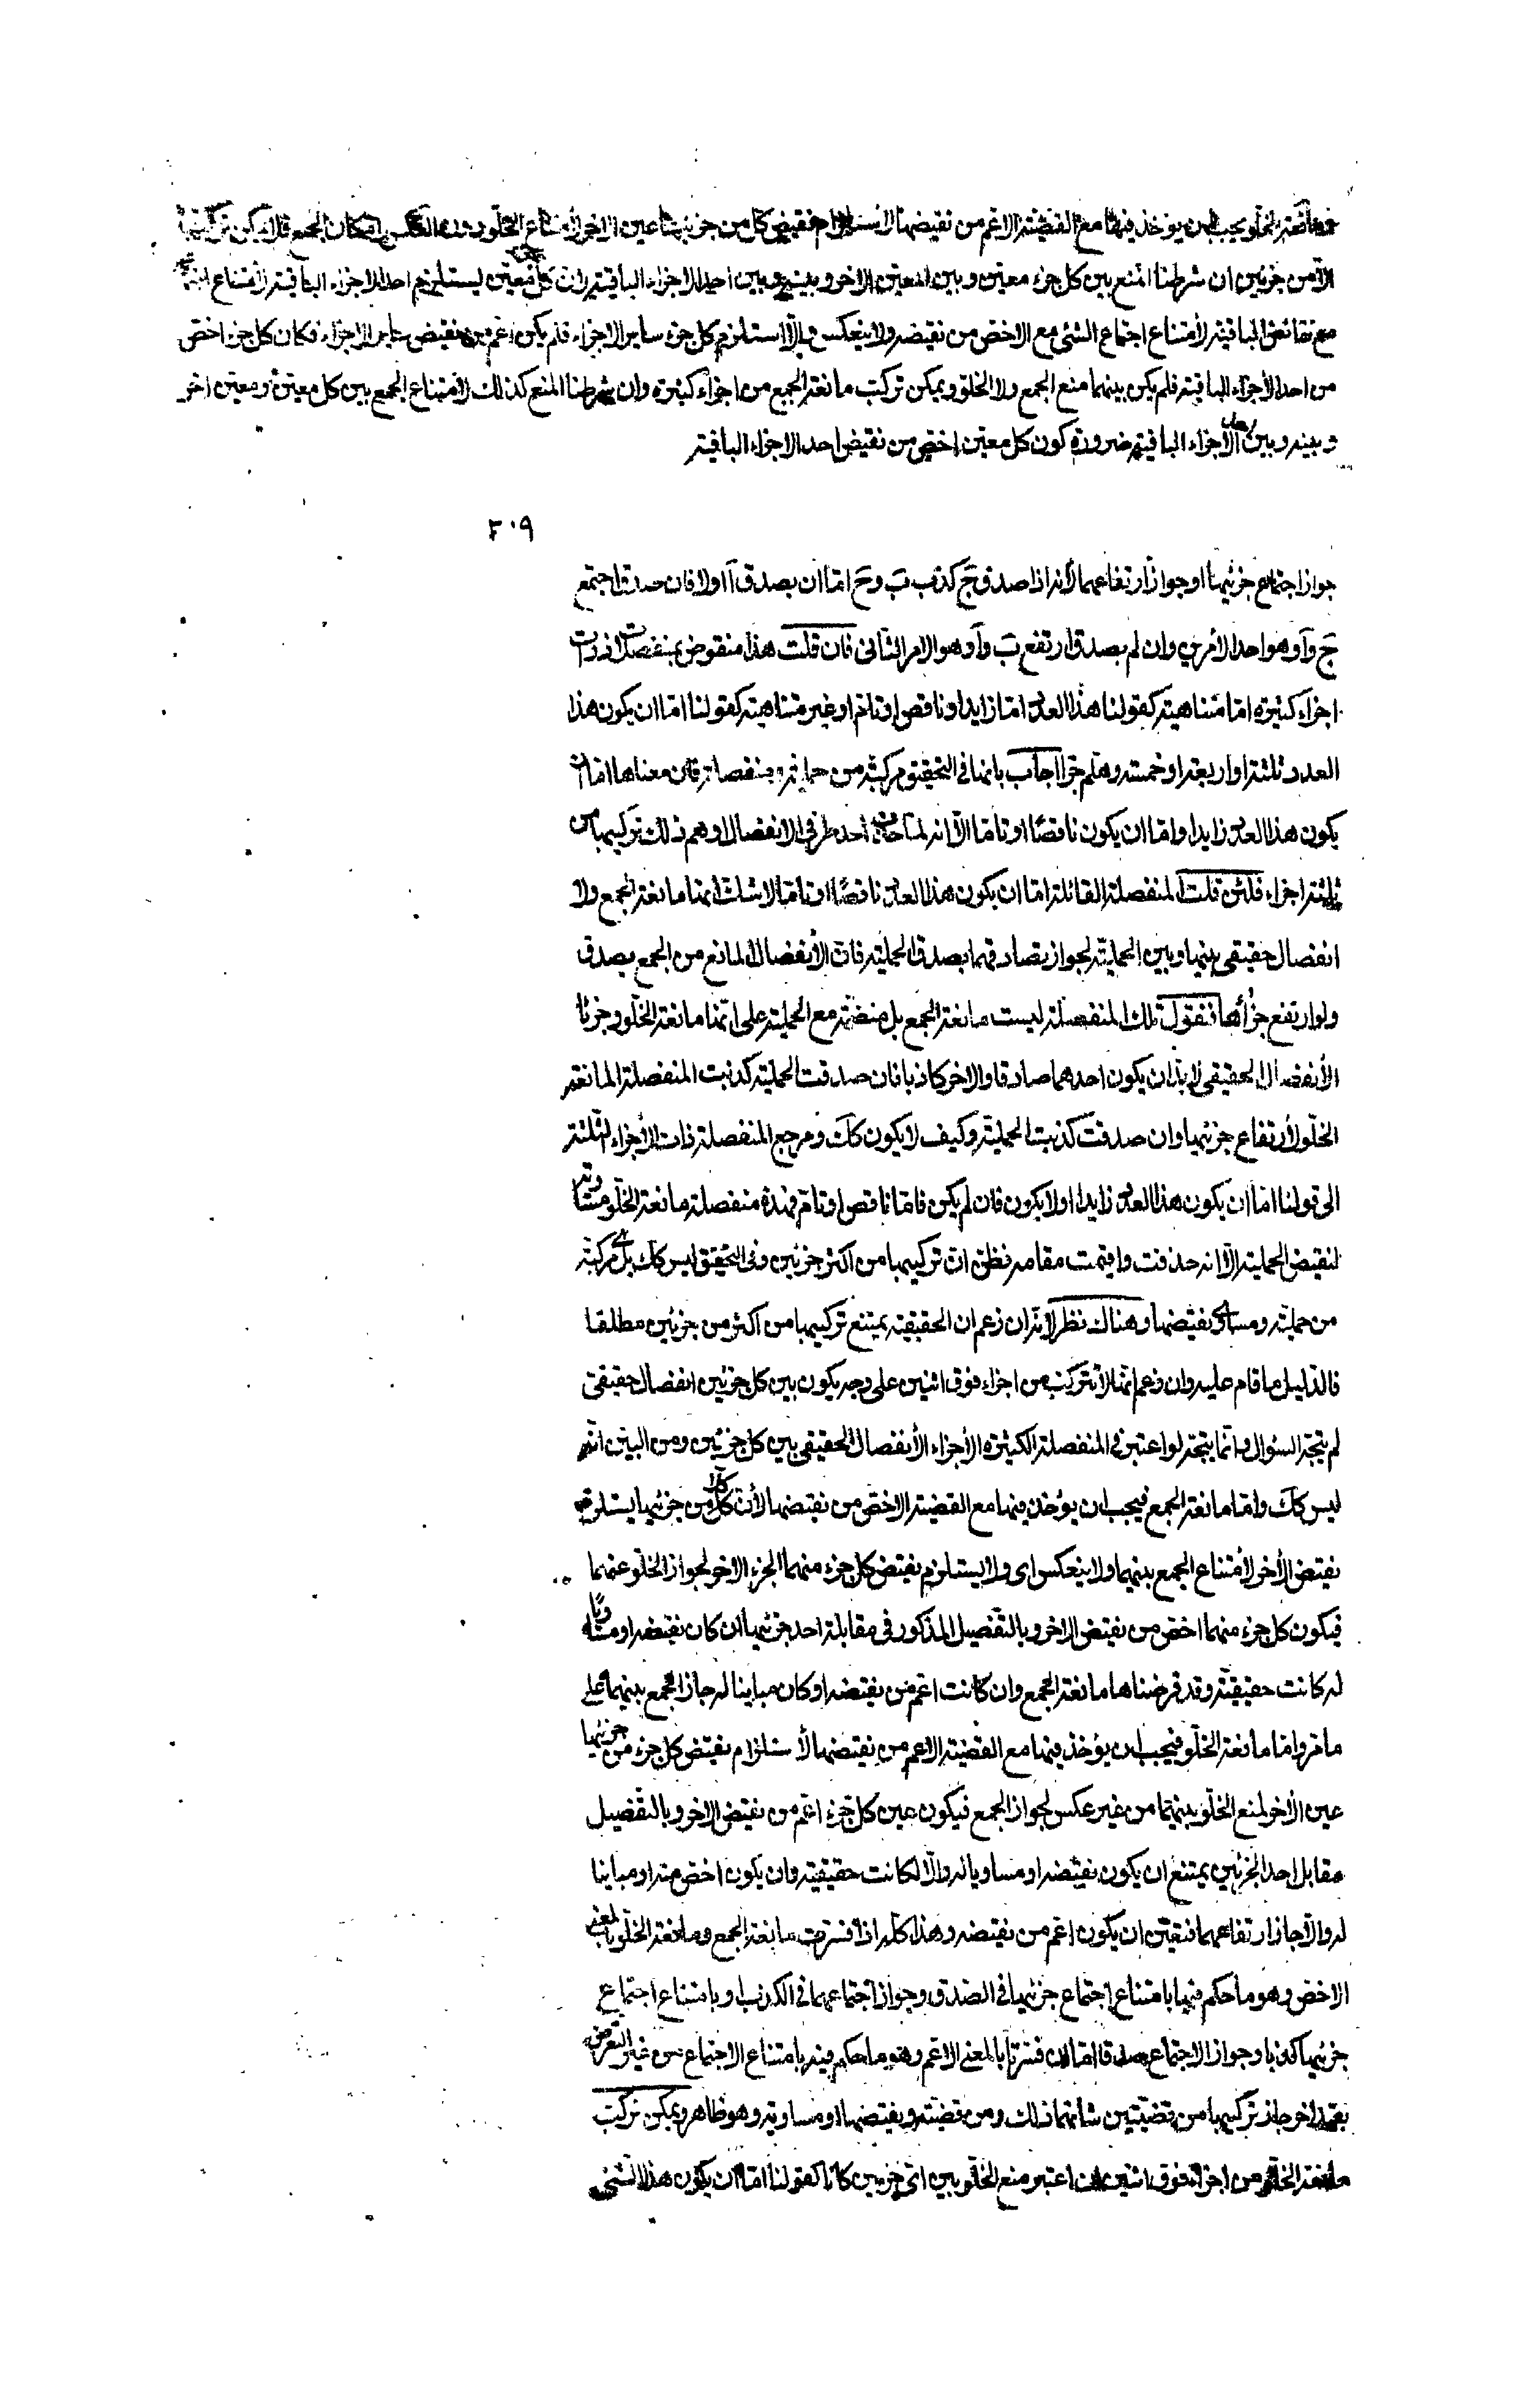 ومانعة الخلو يجب ان يوخذ فيها مع القضية الاعم من نقيضها لاستلزام نقيض كل من جزئيها عين الاخر لامتناع الخلو دون العكس لامكان الجمع فلا يمكن تركيبها
الا من جزئين ان شرطنا المنع بين كل جزء معين وبين المعين الاخر وبينه وبين احد الاجزاء الباقية لان كل معين يستلزم احد الاجزاء الباقية لامتناع
مع نقائض الباقية لامتناع اجتماع الشئ مع الاخص من نقيضه ولا ينعكس والا استلزم كل جزء ساير الاجزاء فلم يكن اعم من نقيض ساير الاجزاء فكان كل جزء اخص
من احد الأجزاء الباقية فلم يكن بينهما منع الجمع ولا الخلو ويمكن تركب مانعة الجمع من اجزاء كثيرة وان شرطنا المنع كذلك لامتناع الجمع بين كل معين ومعين اخر
وبينه وبين احد الأجزاء الباقية ضرورة كون كل معين اخص من نقيض احد الاجزاء الباقية
٢٠٩
جواز اجتماع جزئيها او جواز ارتفاعهما لأنه اذا صدق ج كذب ب وح اما ان يصدق آ اولا فان صدق اجتمع
ج وآ وهو احد الأمرين وان لم يصدق ارتفع ب وآ وهو الامر الثاني فان قلت هذا منقوض بمنفصلات ذوات
اجزاء كثيرة اما متناهية كقولنا هذا العدد اما زايد او ناقص او تام او غير متناهية كقولنا اما ان يكون هذا
العدد ثلثة او اربعة او خمسة وهلم جرا اجاب بانها في التحقيق مركبة من حملية ومنفصلة فان معناها اما ان
يكون هذا العدد زايدا واما ان يكون ناقصا او تاما الا انه لما حذف احد طرفي الانفصال اوهم ذلك تركيبها من
ثلثة اجزاء فلئن قلت المنفصلة القائلة اما ان يكون هذا العدد ناقصا او تاما لا شك انها مانعة الجمع ولا
انفصال حقيقى بينها وبين الحملية لجواز تصادقهما بصدق الحملية فان الأنفصال المانع من الجمع يصدق
ولو ارتفع جزءاها فنقول تلك المنفصلة ليست مانعة الجمع بل منضمة مع الحملية على انها مانعة الخلو وجزءا
الأنفصال الحقيقي لا بد ان يكون احدهما صادقا والاخر كاذبا فان صدقت الحملية كذبت المنفصلة المانعة
الخلو لأرتفاع جزئيها وان صدقت كذبت الحملية وكيف لا يكون كك ومرجع المنفصلة ذات الأجزاء الثلثة
الى قولنا اما ان يكون هذا العدد زايدا او لا يكون فان لم يكن فاما ناقص او تام فهذه منفصلة مانعة الخلو مساوية
لنقيض الحملية الا انه حذفت واقيمت مقامه فظن ان تركيبها من اكثر جزئين وفي التحقيق ليس كك بل هي مركبة
من حملية ومساوى نقيضها وهناك نظر لانه ان زعم ان الحقيقية يمتنع تركيبها من اكثر من جزئين مطلقا
فالدليل ما قام عليه وان زعم انها لا تتركب من اجزاء فوق اثنين على وجه يكون بين كل جزئين انفصال حقيقى
لم يتجه السؤال وانما يتجه لو اعتبر فى المنفصلة الكثيرة الأجزاء الأنفصال الحقيقى بين كل جزئين ومن البين انه
ليس كك واما مانعة الجمع فيجب ان يؤخذ فيها مع القضية الاخص من نقيضها لأن كلا من جزئيها يستلزم
نقيض الأخر لأمتناع الجمع بينهما ولا ينعكس اى ولا يستلزم نقيض كل جزء منهما الجزء الاخر لجواز الخلو عنهما
فيكون كل جزء منهما اخص من نقيض الاخر وبالتفصيل المذكور فى مقابلة احد جزئيها ان كان نقيضه او مساويا
له كانت حقيقية وقد فرضناها مانعة الجمع وان كانت اعم من نقيضه او كان مباينا له جاز الجمع بينهما على
ما مر واما مانعة الخلو فيجب ان يؤخذ فيها مع القضية الاعم من نقيضها لأستلزام نقيض كل جزء من جزئيها
عين الأخر لمنع الخلو بينهما من غير عكس لجواز الجمع فيكون عين كل جزء اعم من نقيض الاخر وبالتفصيل
مقابل احد الجزئين يمتنع ان يكون نقيضه او مساويا له والا لكانت حقيقية وان يكون اخص منه او مباينا
له والا جاز ارتفاعهما فتعين ان يكون اعم من نقيضه وهذا كله اذا فسرت مانعة الجمع ومانعة الخلو بالمعنى
الاخص وهو ما حكم فيها بامتناع اجتماع جزئيها فى الصدق وجواز اجتماعهما فى الكذب او بامتناع اجتماع
جزئيها كذبا وجواز الاجتماع صدقا اما ان فسرتا بالمعنى الاعم وهو ما حكم فيه بامتناع الاجتماع من غير التعرض
بقيد اخر جاز تركيبها من قضيتين شانهما ذلك ومن قضية ونقيضها او مساويه وهو ظاهر ويمكن تركب
مانعة الخلو من اجزاء فوق اثنين ان اعتبر منع الخلو بين اى جزئين كانا كقولنا اما ان يكون هذا الشئ